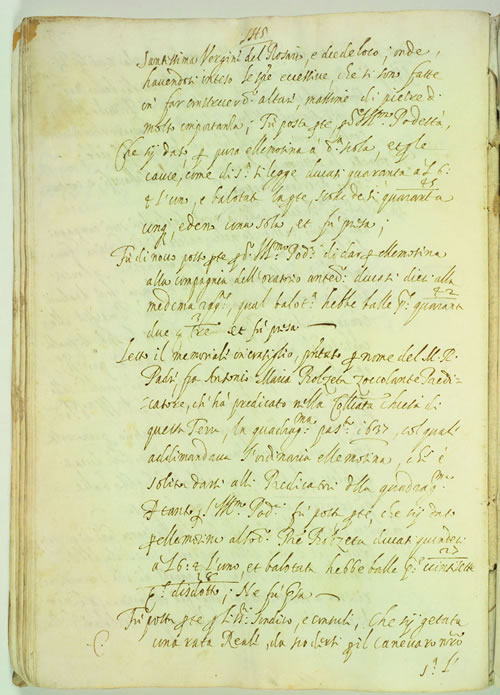 145
Santissima Vergine del Rosario, e dee de loco; onde,
havendosi inteso le spe eccessive, che si son fatte
in far construere d.i altari, massime di pietre di
molto importantia; Fù posta pte p S. Ill.mo Podestà,
Che sij dato, p pura ellemosina a d.a scola, et ple
cause, come di s.a si legge ducati quaranta a L 6:
4 l'uno, e balotat la pte, scode de si quaranta
45
cinq; e de nò una sola, et fù presa;
Fù di novo posto pte p S. Ill.mo Pod: di dar p ellemosina
alla compagnia dell'oratorio anted: ducati dieci alla
medema rag.e, qual balot.a hebbe balle p.o quaranta
42
due q 3 Tre et fù presa
Letto il memoriale in cartesijo, p nome del M. R.
Padre fra Antonio Maria Bolzeta zoccolante Predi-
catore, ch'hà predicato nella Colleata Chiesa di
questa Terra, la quadrag.ma pas.ta 1637, col quale
addimandava l'ordinaria ellemosina, che è
solita darsi alli Predicatori della quadrag.ma
p tanto p S. Ill.mo Pod: fù posta pte, che sij dato
p ellemosina al sod. Pre Bolzeta ducati quindeci
à L 6: 4 l'uno, et balotata hebbe balle p.o vinti sette
27
q.a disdotto; Ne fù psa
18
Fù posta pte p li S.ri Sindico, e consuli, Che sij getata
una rata Reale, da scoderti p il canevaro nro
s.r L'